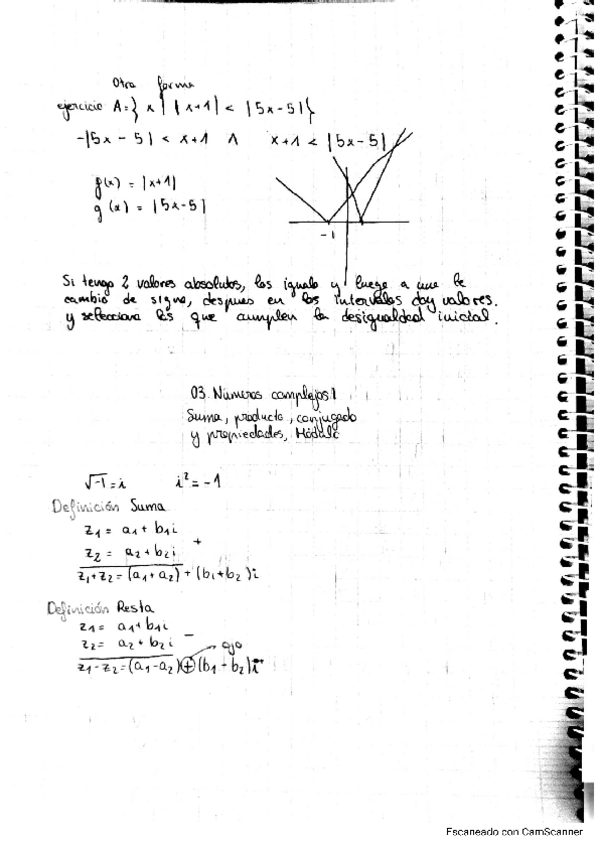 Otra forma
ejercicio A = { x | |x+1| < |5x-5| }
-|5x - 5| < x+1 ∧ x+1 < |5x-5|
f(x) = |x+1|
g(x) = |5x-5|
-1
Si tengo 2 valores absolutos, los igualo y luego a une le
cambio de signo, despues en los intervalos doy valores.
y selecciono los que cumplen la desigualdad inicial.
03. Números complejos 1
Suma, producto, conjugado
y propiedades, Módulo
√-1 = i i² = -1
Definición Suma
z₁ = a₁ + b₁i
z₂ = a₂ + b₂i +
z₁+z₂ = (a₁+a₂) + (b₁+b₂)i
Definición Resta
z₁ = a₁ + b₁i
z₂ = a₂ + b₂i - → ojo
z₁-z₂ = (a₁-a₂) ⊕ (b₁-b₂)i
Escaneado con CamScanner